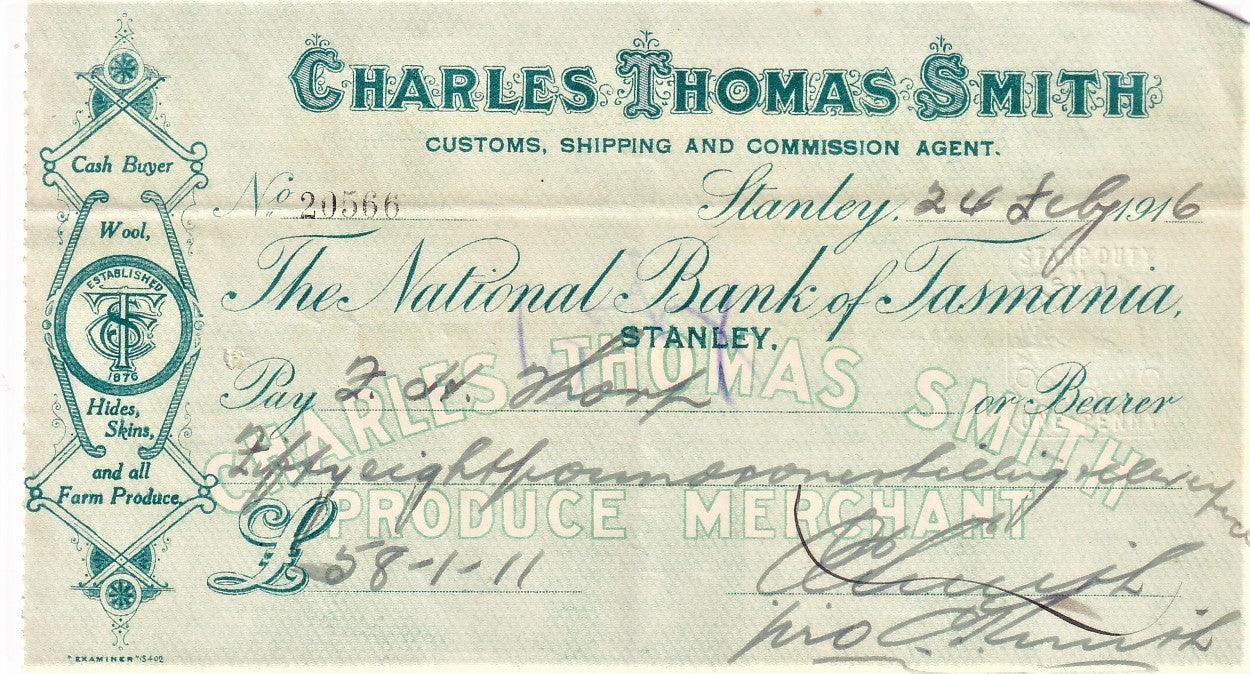 CHARLES THOMAS SMITH
CUSTOMS, SHIPPING AND COMMISSION AGENT.
Cash Buyer
Wool,
ESTABLISHED
CTS
1876
Hides,
Skins,
and all
Farm Produce,
No 20566
Stanley, 24 Feby 1916
The National Bank of Tasmania,
STANLEY.
STAMP DUTY
CHARLES THOMAS SMITH
Pay F. W. Thorp or Bearer
ONE PENNY
Fifty eight pounds one shilling & eleven pence
PRODUCE MERCHANT
£ 58-1-11
pro C. T. Smith
"EXAMINER"